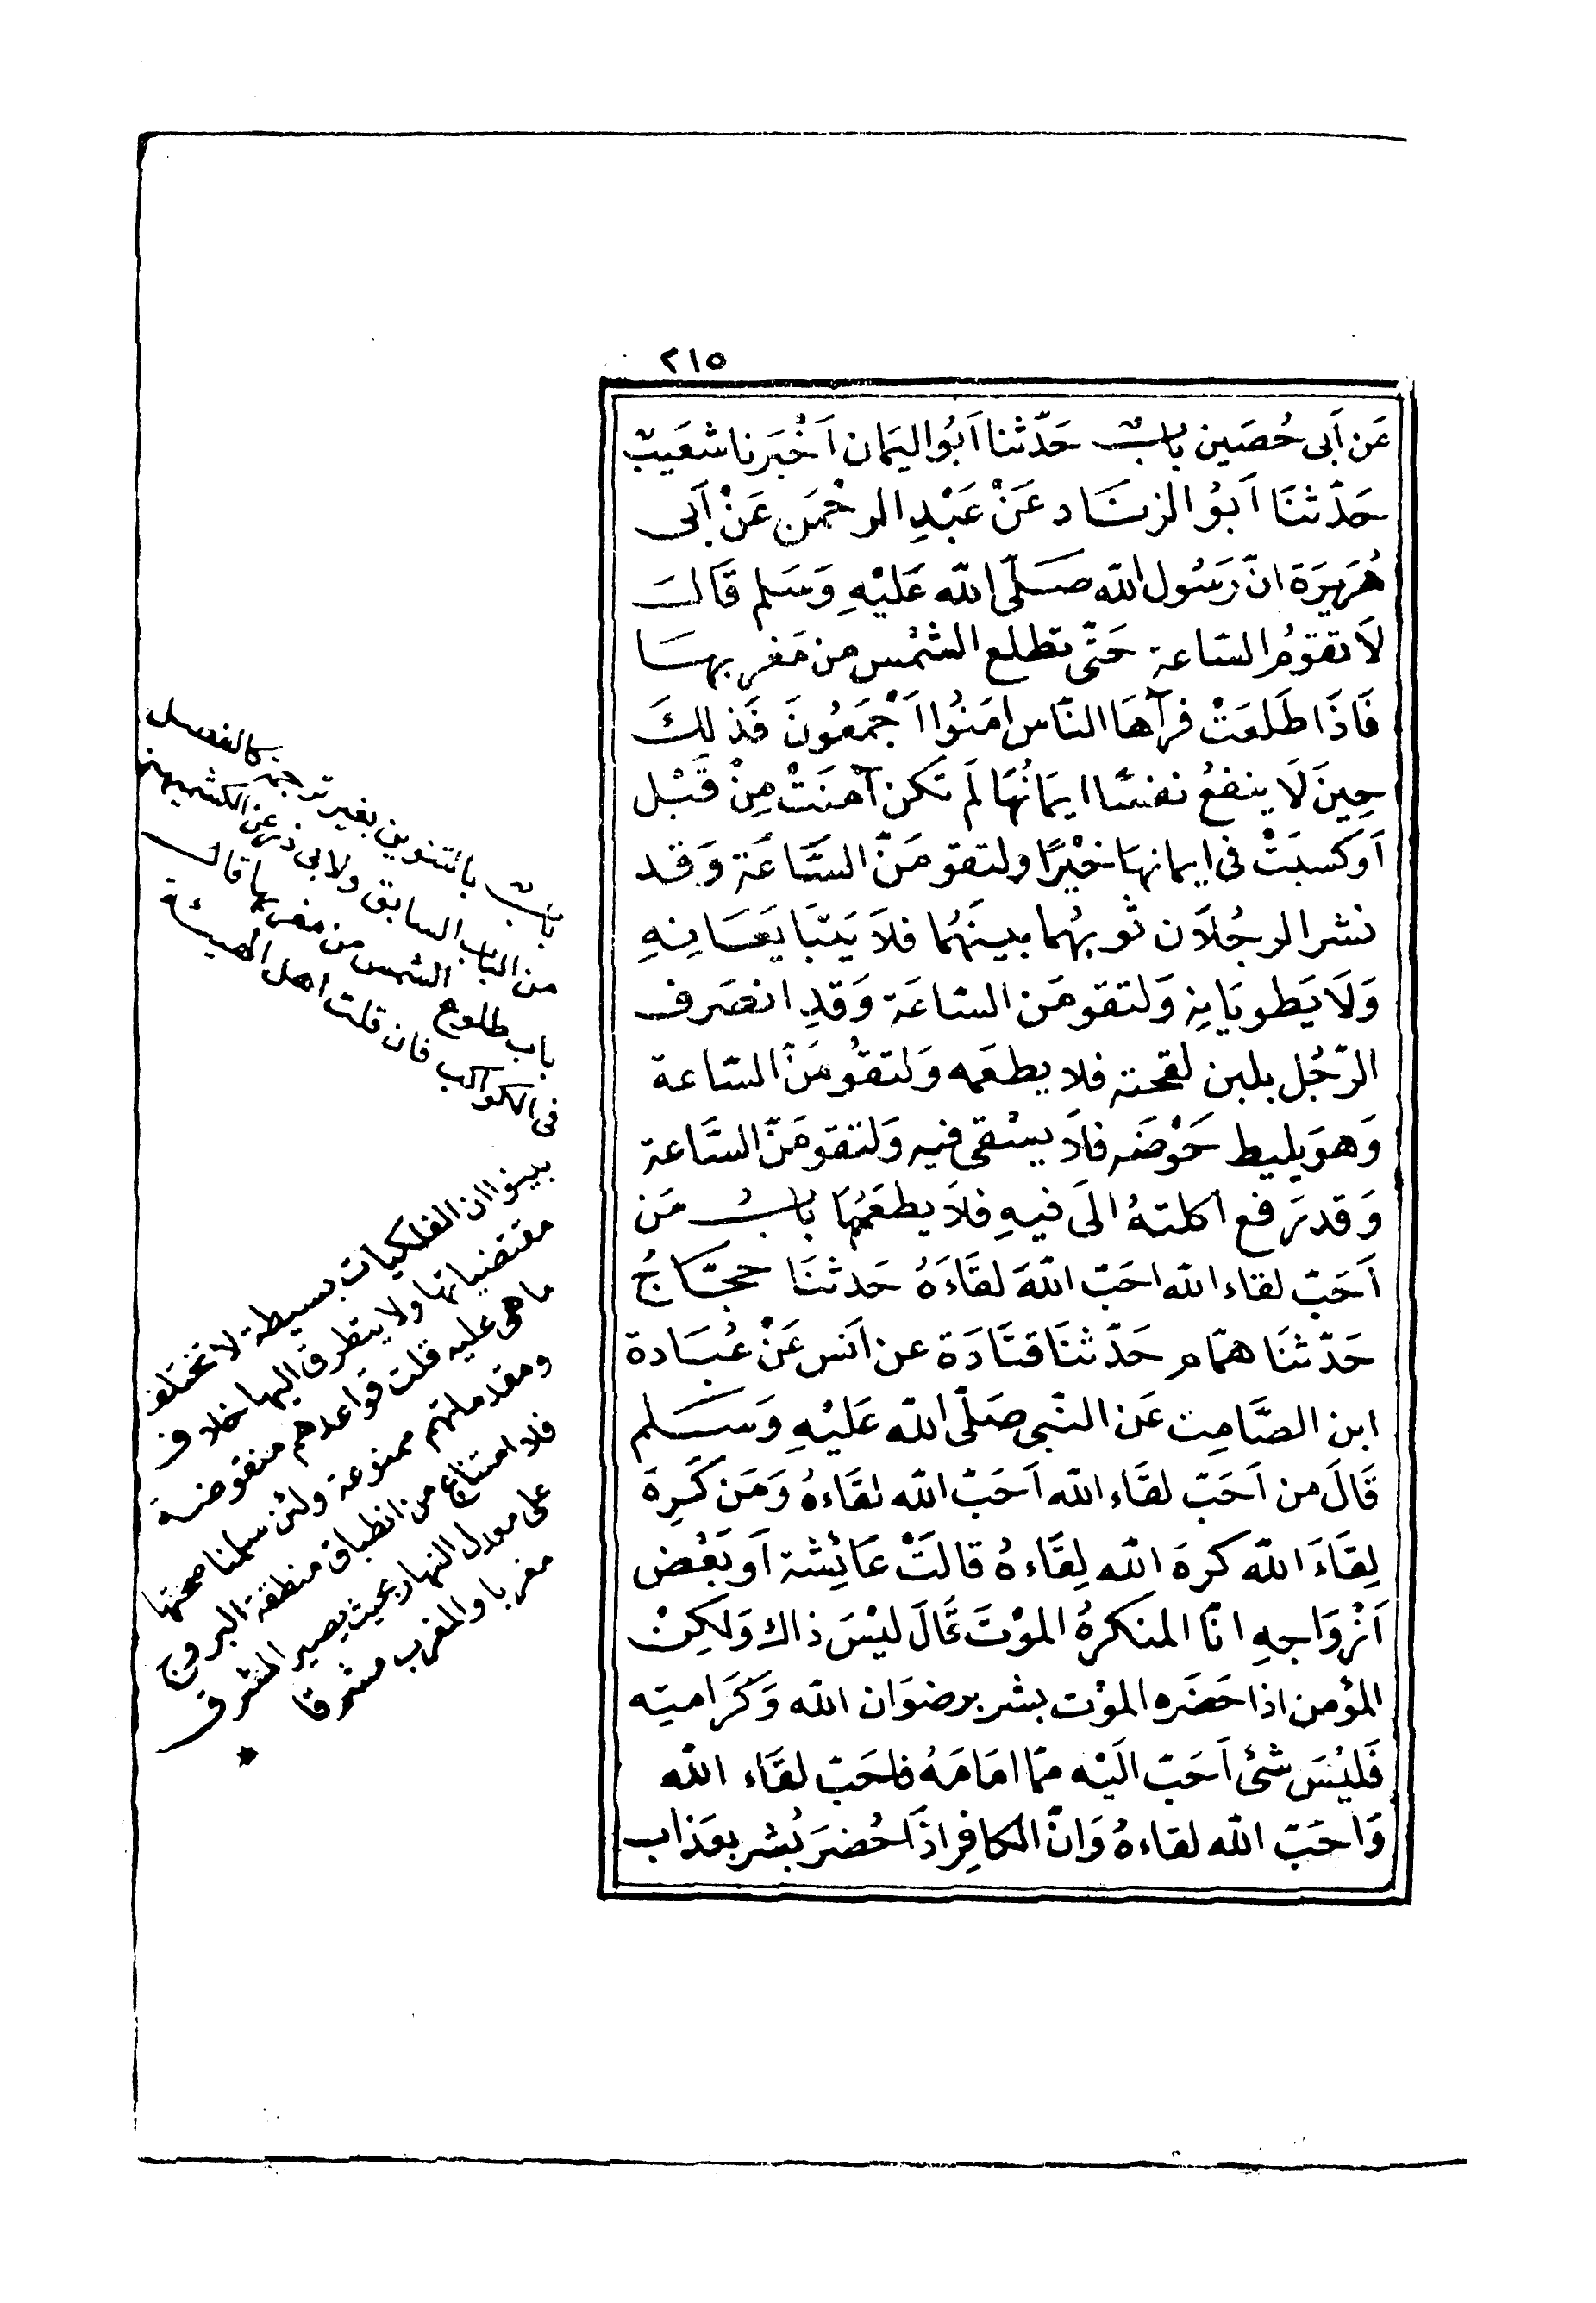 ٢١٥
عَن أَبى حُصَين بابٌ حَدّثنا اَبُو اليَمان اَخْبَرنا شعَيبٌ
حَدّثنَا اَبُو الزنَاد عَنْ عَبْدِ الرحْمَن عَنْ اَبى
هُرَيرَة انّ رَسُول الله صَلّى الله عَليْهِ وَسَلم قَالَ
لاَ تقومُ السّاعة حَتّى تطلع الشمْس من مَغربهَا
فَاذَا طَلعَتْ فرآهَا النّاس امَنُوا اَجْمَعُونَ فَذلِكَ
حِينَ لاَ ينفعُ نفسًا ايمَانُهَا لَم تَكن آمَنَتْ مِنْ قَبْل
اَوكسبَتْ فى ايمانهَا خيْرًا ولتقومَنّ السَّاعَة وَقد
نشر الرجُلاَن ثوبهُما بينَهُما فلاَ يَتبَايعَانِهِ
وَلاَ يَطويَانِهِ وَلتقومَن السّاعَة وَقدِ انصَرف
الرّجُل بلبن لقحته فلا يطعَمه وَلتقُومَنّ السّاعة
وَهوَ يليط حَوْضَه فلاَ يسْقى فيه وَلتقومَنّ السَّاعة
وَقد رَفع اكلتهُ الَى فيهِ فلاَ يطعَمُهَا بابُ مَن
اَحَبّ لقاء الله احَبّ اللهَ لقَاءَهُ حَدثنَا حجّاجُ
حَدّثنَا همّام حَدّثنَا قتَادَة عن اَنس عَنْ عُبَادة
ابن الصَّامِت عَن النّبى صَلّى الله عَليْهِ وَسَلم
قَالَ من اَحَبّ لقَاء الله اَحَبّ الله لقَاءهُ وَمَن كَرِهَ
لِقَاءَ الله كرهَ الله لِقَاءهُ قالَتْ عَائِشة اَو بَعْض
اَزْوَاجهِ انّا المنكرهُ الموْتَ قَالَ ليْسَ ذاك وَلَكِنْ
المؤمن اذا حَضَره الموْت بشر برضوَان الله وَكَرَامته
فَليْسَ شئ اَحَبّ الَيْه ممّا امَامَهُ فاحَبّ لقَاء الله
وَاحَبّ الله لقاءهُ وَانّ الكافِر اذَا حُضرَ بُشر بعَذاب
بابٌ بالتنوين بغير ترجمة كالفصل
من الباب السابق ولابى ذر عن الكشميهنى
باب طلوع الشمس من مغربها قال
فى الكواكب فان قلت اهل الهيئة
بينوا ان الفلكيات بسيطة لا تختلف
مقتضياتها ولا يتطرق اليها خلاف
ما هى عليه قلت قواعدهم منقوضة
ومقدماتهم ممنوعة ولئن سلمنا صحتها
فلا امتناع من انطباق منطقة البروج
على معدل النهار بحيث يصير المشرق
مغربا والمغرب مشرقا